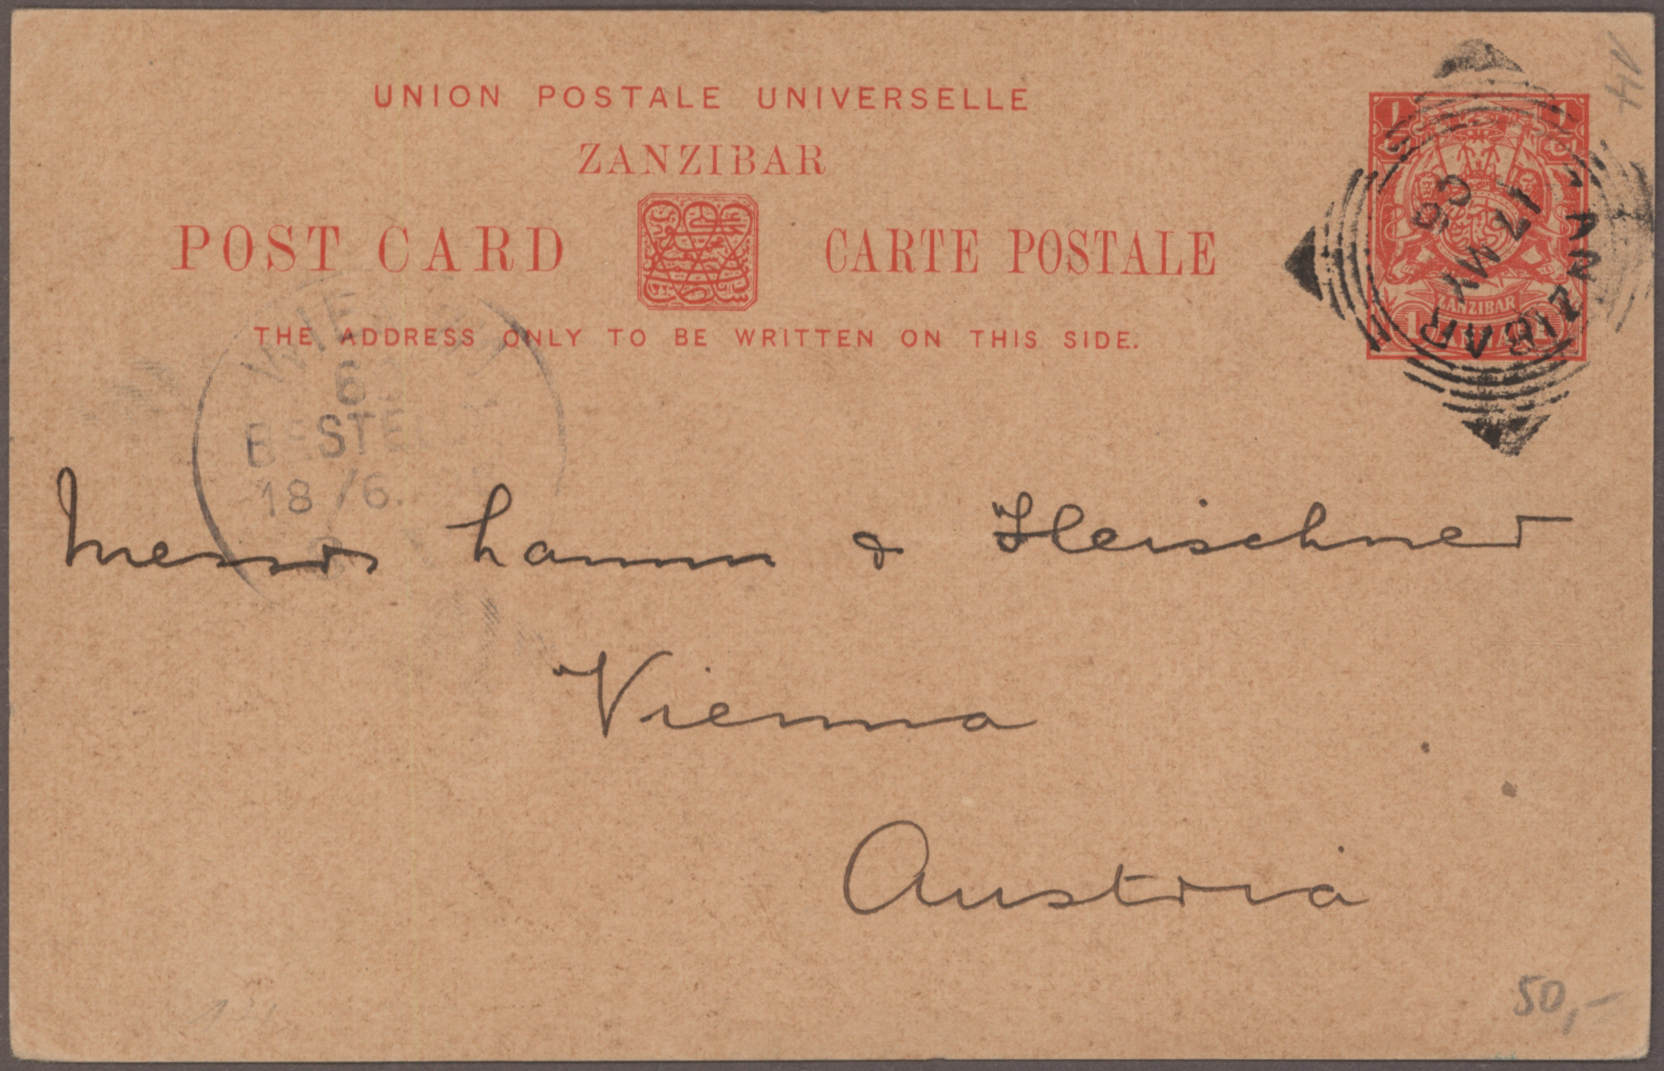 UNION POSTALE UNIVERSELLE
ZANZIBAR
POST CARD CARTE POSTALE
THE ADDRESS ONLY TO BE WRITTEN ON THIS SIDE.
ZANZIBAR
ZANZIBAR
17 MY
WIEN
6
BESTEL
18/6.
Messrs hamm & Fleischner
Vienna
Austria
14
50,-